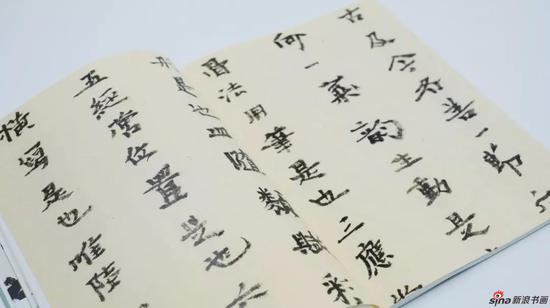 古及今各善一節
何一氣韻生動是
骨法用筆是也三應
是也四隨類賦彩
五經營位置是也
模寫是也唯陸
sina新浪书画